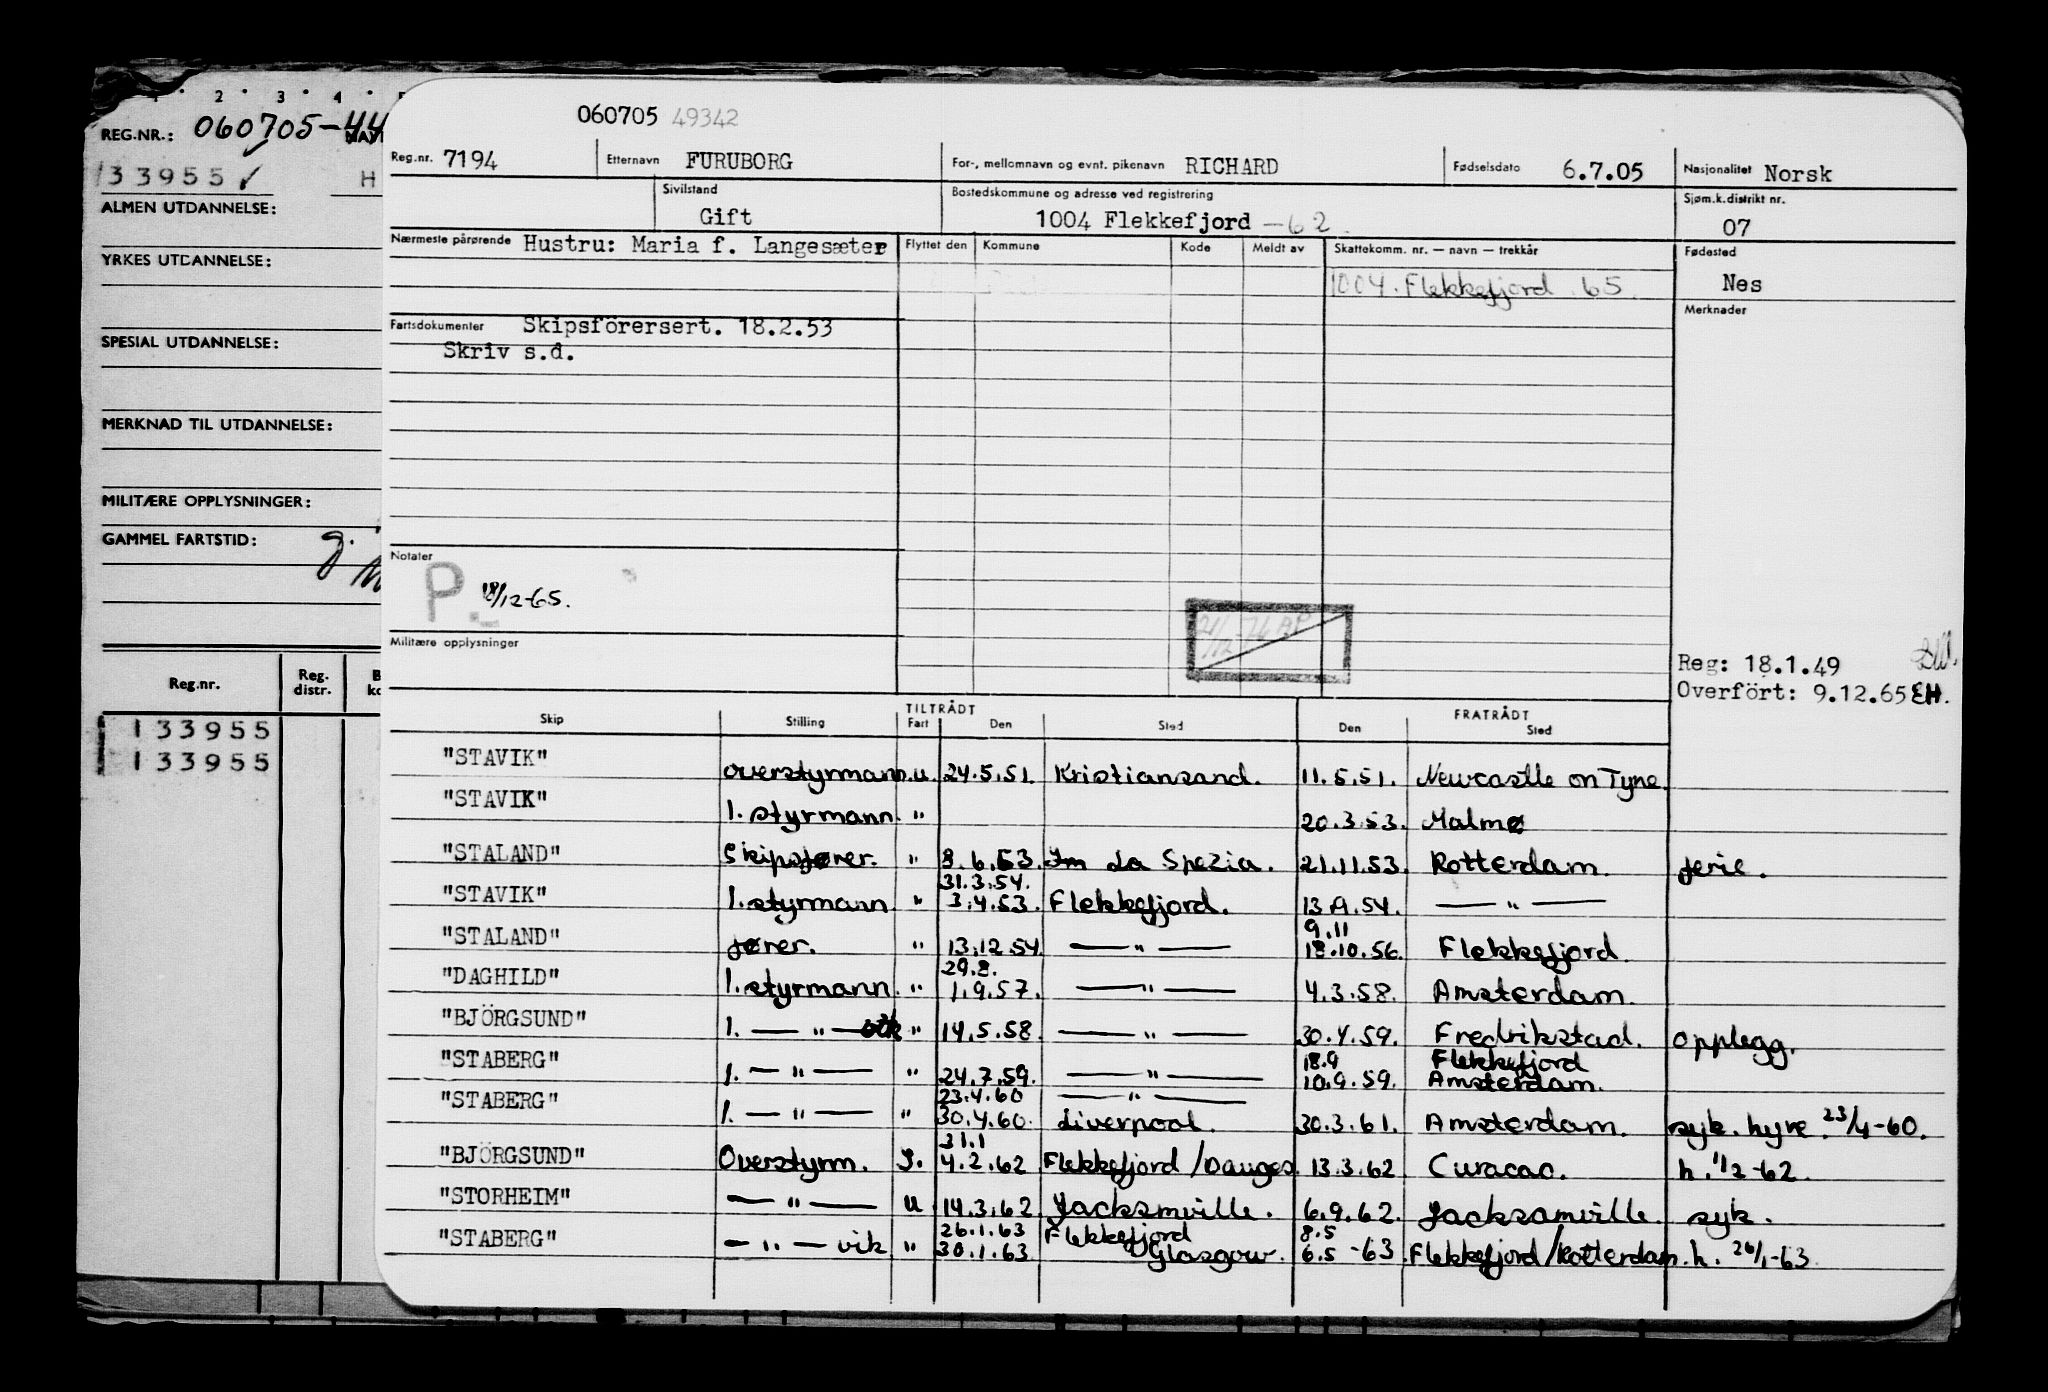 1 2 3 4
REG.NR.: 060705-44
133955 ✓ H
ALMEN UTDANNELSE:
YRKES UTDANNELSE:
SPESIAL UTDANNELSE:
MERKNAD TIL UTDANNELSE:
MILITÆRE OPPLYSNINGER:
GAMMEL FARTSTID:
Reg.nr. Reg. distr.
133955
133955
060705 49342
Reg.nr. 7194 Etternavn FURUBORG For-, mellomnavn og evnt. pikenavn RICHARD Fødselsdato 6.7.05 Nasjonalitet Norsk
Sivilstand Gift Bostedskommune og adresse ved registrering 1004 Flekkefjord -62 Sjøm.k.distrikt nr. 07
Nærmeste pårørende Hustru: Maria f. Langesæter Flyttet den Kommune Kode Meldt av Skattekomm. nr. — navn — trekkår Fødested Nes
1004 Flekkefjord 65
Merknader
Fartsdokumenter Skipsförersert. 18.2.53
Skriv s.d.
Notater
P. 18/12-65.
Militære opplysninger
Reg: 18.1.49
Overført: 9.12.65 EH.
TILTRÅDT FRATRÅDT
Skip Stilling Fart Den Sted Den Sted
"STAVIK" overstyrmann u. 24.5.51. Kristiansand. 11.5.51. Newcastle on Tyne.
"STAVIK" 1. styrmann " 20.3.53. Malmø
"STALAND" Skipsfører. " 8.6.53. La Spezia. 21.11.53. Rotterdam. ferie.
31.3.54.
"STAVIK" 1. styrmann " 3.4.53. Flekkefjord. 13.9.54. — " —
9.11
"STALAND" fører. " 13.12.54. — " — 18.10.56. Flekkefjord.
29.8.
"DAGHILD" 1. styrmann. " 1.9.57. — " — 4.3.58. Amsterdam.
"BJÖRGSUND" 1. — " — " 14.5.58. — " — 30.4.59. Fredrikstad. opplegg.
18.9 Flekkefjord
"STABERG" 1. — " — " 24.7.59. — " — 10.9.59. Amsterdam.
23.4.60 — " —
"STABERG" 1. — " — " 30.4.60. Liverpool. 30.3.61. Amsterdam. syk. hyre. 23/4-60.
31.1
"BJÖRGSUND" Overstyrm. 4.2.62 Flekkefjord / 13.3.62 Curacao. h. 1/2-62.
"STORHEIM" — " — u 14.3.62 Jacksonville. 6.9.62. Jacksonville. syk.
26.1.63 Flekkefjord 8.5
"STABERG" — " — vik " 30.1.63. Glasgow. 6.5-63. Flekkefjord/Rotterdam. h. 26/1-63